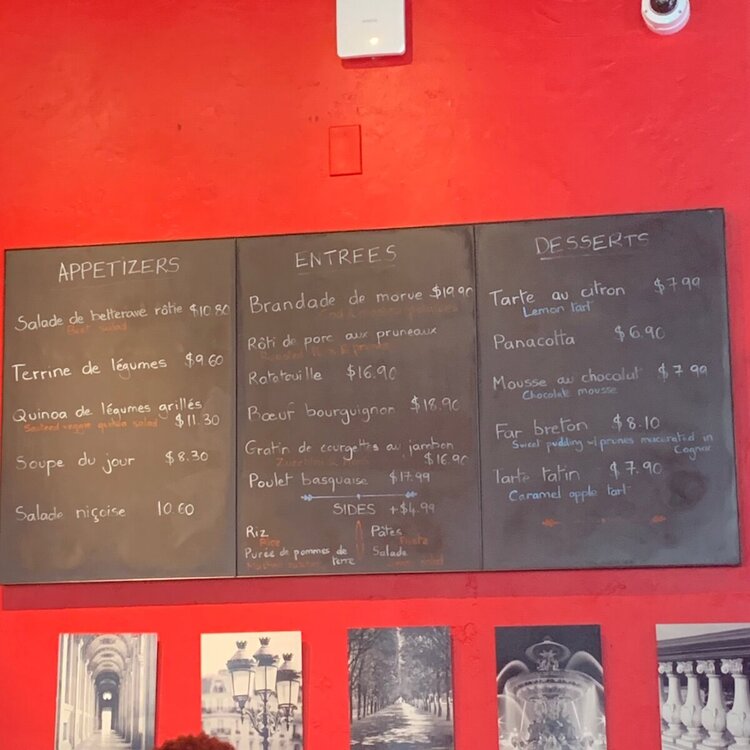 APPETIZERS
Salade de betterave rôtie $10.80
Beet salad
Terrine de légumes $9.60
Quinoa de légumes grillés
Sauteed veggie quinoa salad $11.30
Soupe du jour $8.30
Salade niçoise 10.60
ENTREES
Brandade de morue $19.90
Rôti de porc aux pruneaux
Ratatouille $16.90
Bœuf bourguignon $18.90
Gratin de courgettes au jambon
$16.90
Poulet basquaise $17.99
SIDES +$4.99
Riz
Rice
Pâtes
Pasta
Purée de pommes de
terre
Salade
DESSERTS
Tarte au citron $7.99
Lemon tart
Panacotta $6.90
Mousse au chocolat $7.99
Chocolate mousse
Far breton $8.10
Sweet pudding w/prunes macerated in
Cognac
Tarte tatin $7.90
Caramel apple tart